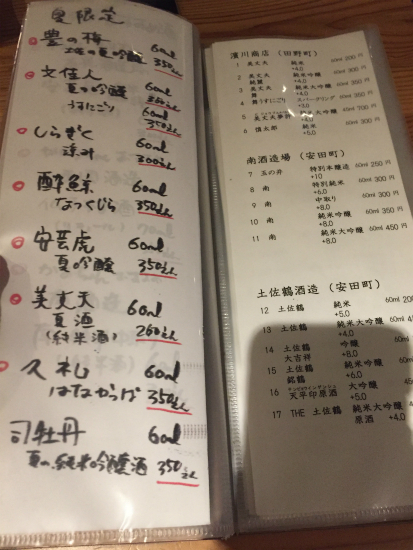 夏限定
豊の梅 60ml
土佐の夏吟醸 350えん
文佳人 60ml
夏の吟醸 350えん
うすにごり 60ml
350えん
しらぎく 60ml
涼み 300えん
酔鯨 60ml
なつくじら 350えん
安芸虎 60ml
夏吟醸 350えん
美丈夫 60ml
夏酒 260えん
(純米酒)
久礼 60ml
はなかつお 350えん
司牡丹 60ml
夏の純米吟醸酒 350えん
濱川商店 (田野町)
1 美丈夫 純米 60ml 200円
+4.0
2 美丈夫 純米吟醸 60ml 300円
+4.0
3 美丈夫 純米大吟醸 60ml
舞 +4.0
4 舞うすにごり スパークリング 60ml 350円
+3.0
5 美丈夫夢許 純米大吟醸 60ml 700円
6 慎太郎 純米 60ml 300円
+5.0
南酒造場 (安田町)
7 玉の井 特別本醸造 60ml 250円
+10
8 南 特別純米 60ml 300円
+6.0
9 南 中取り 60ml 300円
+8.0
10 南 純米吟醸 60ml 350円
+8.0
11 南 純米大吟醸 60ml 450円
+8.0
土佐鶴酒造 (安田町)
12 土佐鶴 純米 60ml
+5.0
13 土佐鶴 純米大吟醸
+4.0
14 土佐鶴 吟醸
大吉祥 +8.0
15 土佐鶴 純米吟醸
銘鶴 +6.0
16 天平印原酒 大吟醸
+5.0
17 THE 土佐鶴 純米大吟醸
原酒 +4.0